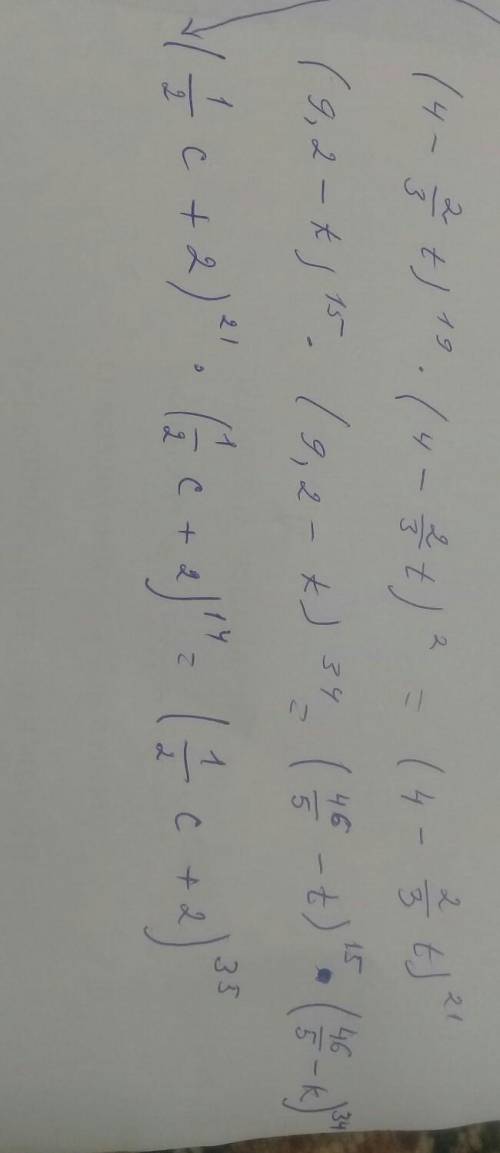 (4 - 2/3 t)^19 · (4 - 2/3 t)^2 = (4 - 2/3 t)^21
(9,2 - t)^15 · (9,2 - k)^34 = (46/5 - t)^15 · (46/5 - k)^34
(1/2 c + 2)^21 · (1/2 c + 2)^14 = (1/2 c + 2)^35